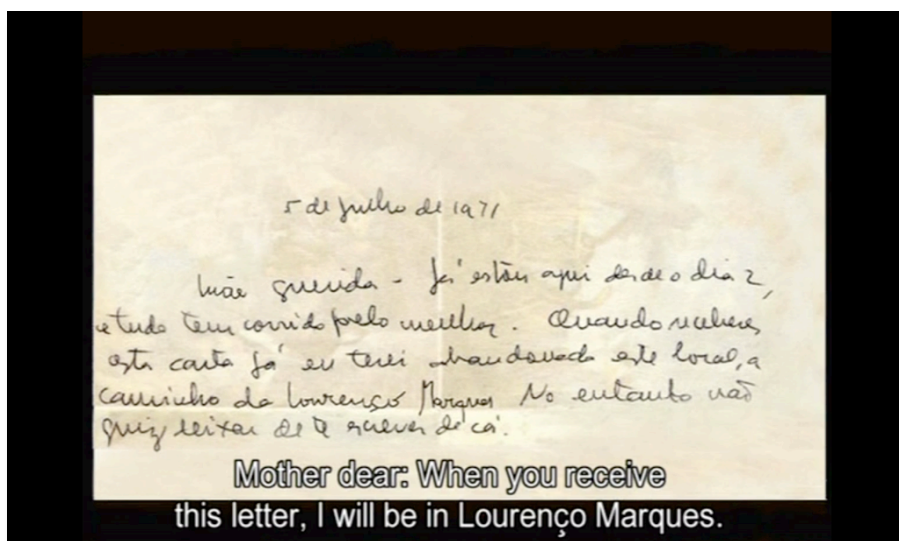 5 de Julho de 1971
Mãe querida - Já estou aqui desde o dia 2,
e tudo tem corrido pelo melhor. Quando receberes
esta carta já eu terei abandonado este local, a
caminho de Lourenço Marques No entanto não
quiz deixar de te escrever de cá.
Mother dear: When you receive
this letter, I will be in Lourenço Marques.